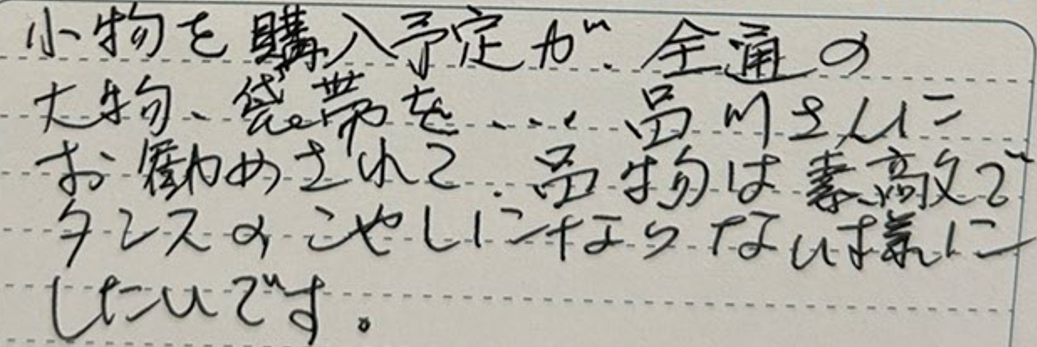 小物を購入予定が、全通の
大物、袋帯を・・・品川さんに
お勧めされて、品物は素敵で
タンスのこやしにならない様に
したいです。